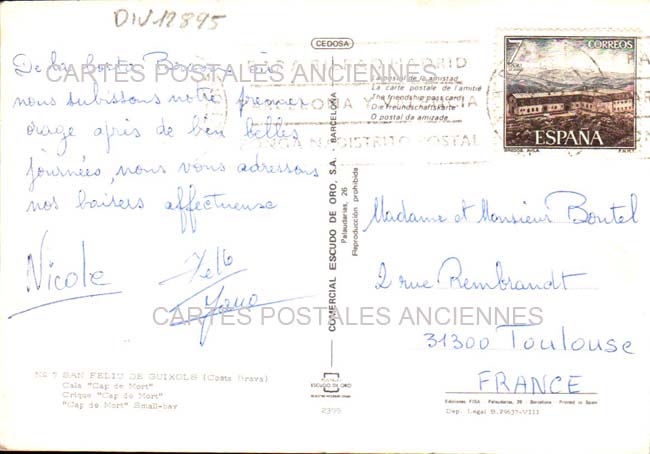 DIV12895
CEDOSA
De la Costa Brava où
nous subissons notre premier
orage après de bien belles
journées, nous vous adressons
nos baisers affectueuse
Nicole
CARTES POSTALES ANCIENNES
La postal de la amistad
La carte postale de l'amitié
The friendship pass card
Die Freundschaftskarte
O postal da amizade
PONGA N. DISTRITO POSTAL
7
PTAS
CORREOS
ESPAÑA
GREDOS. AVILA
F.N.M.T.
COMERCIAL ESCUDO DE ORO, S.A. - BARCELONA
Palaudarias, 26
Reproducción prohibida
Madame et Monsieur Boutel
2 rue Rembrandt
31300 Toulouse
FRANCE
CARTES POSTALES ANCIENNES
No 7 SAN FELIU DE GUIXOLS (Costa Brava)
Cala "Cap de Mort"
Crique "Cap de Mort"
"Cap de Mort" Small-bay
ESCUDO DE ORO
2395
Ediciones FISA - Palaudarias, 26 - Barcelona - Printed in Spain
Dep. Legal B. 29637-VIII